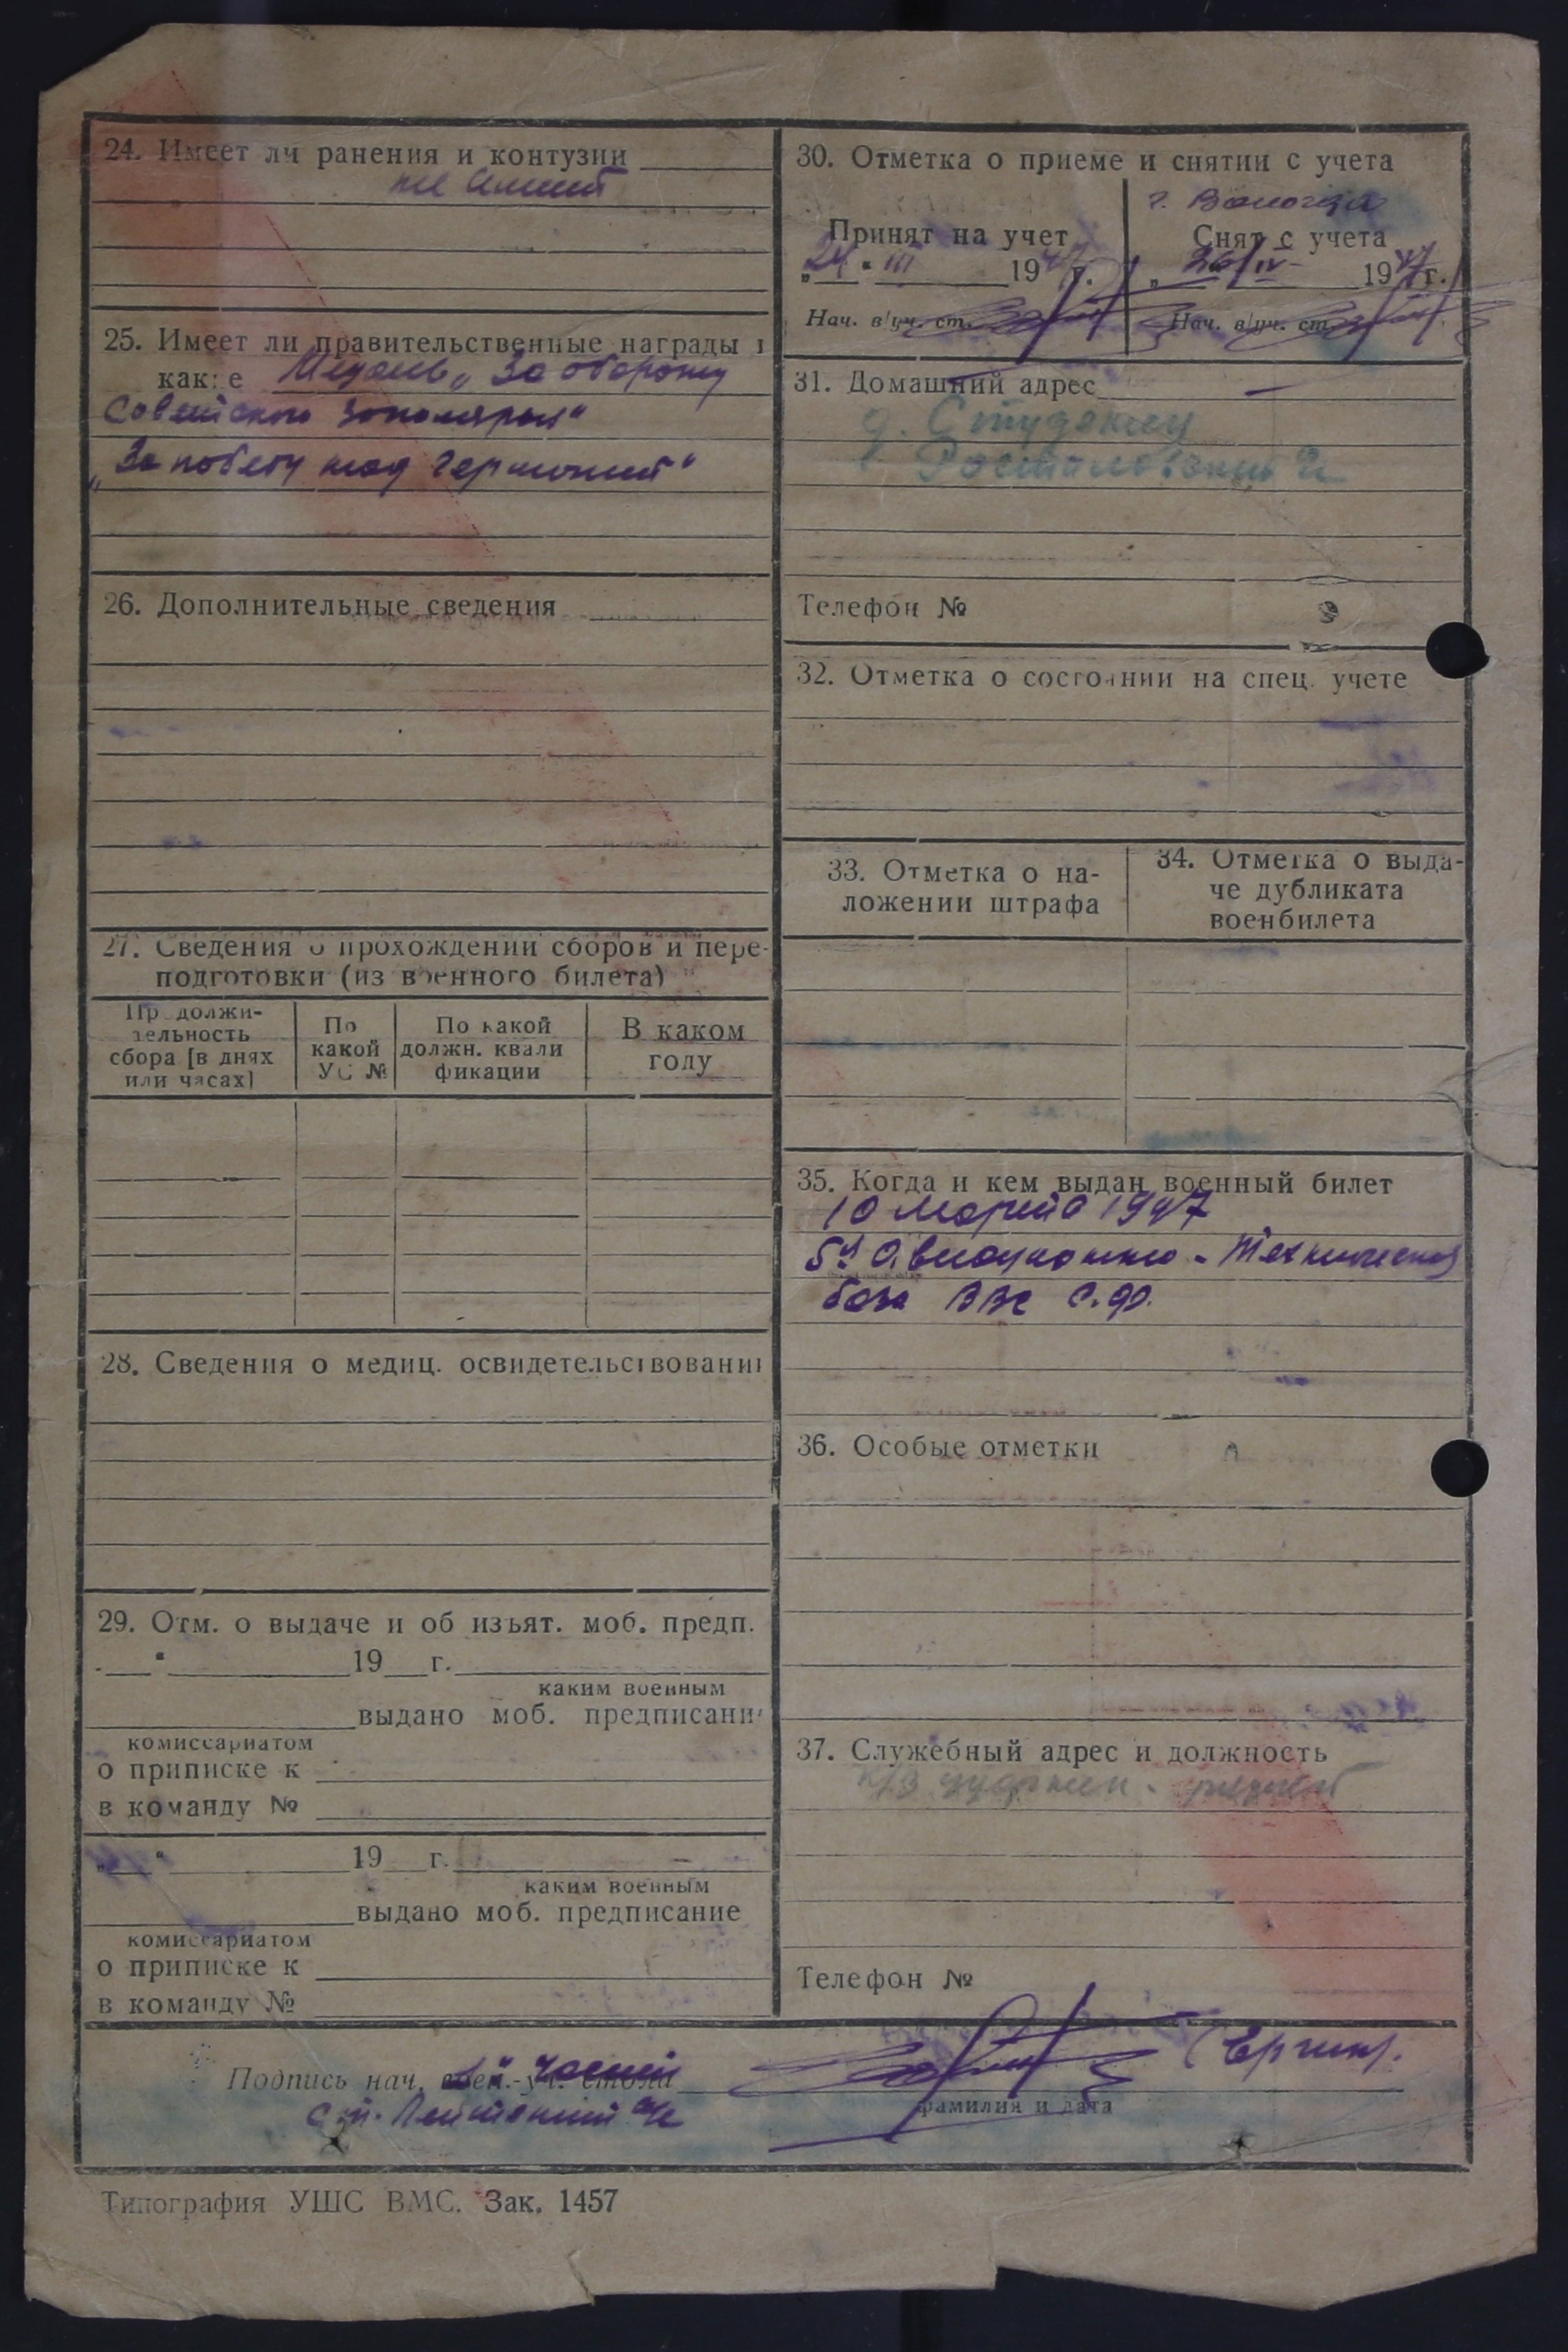 24. Имеет ли ранения и контузии
не имеет
25. Имеет ли правительственные награды и
какие Медаль „За оборону
Советского Заполярья"
„За победу над Германией"
26. Дополнительные сведения
27. Сведения о прохождении сборов и пере-
подготовки (из военного билета)
Продолжи-
тельность
сбора [в днях
или часах]
По
какой
УС №
По какой
должн. квали
фикации
В каком
году
28. Сведения о медиц. освидетельствовании
29. Отм. о выдаче и об изъят. моб. предп.
" 19 г.
каким военным
выдано моб. предписание
комиссариатом
о приписке к
в команду №
„ " 19 г.
каким военным
выдано моб. предписание
комиссариатом
о приписке к
в команду №
30. Отметка о приеме и снятии с учета
Принят на учет
„24" III 1947 г.
Нач. в/уч. ст.
г. Вологда
Снят с учета
„ 26/IV 1947 г.
Нач. в/уч. ст.
31. Домашний адрес
д. Студенец
Телефон №
32. Отметка о состоянии на спец. учете
33. Отметка о на-
ложении штрафа
34. Отметка о выда-
че дубликата
военбилета
35. Когда и кем выдан военный билет
10 Марта 1947
5й Авиационно-Техническая
база ВВС С.Ф.
36. Особые отметки
37. Служебный адрес и должность
Телефон №
Подпись нач. части
Ст. Лейтенант а/с
фамилия и дата
Типография УШС ВМС. Зак. 1457